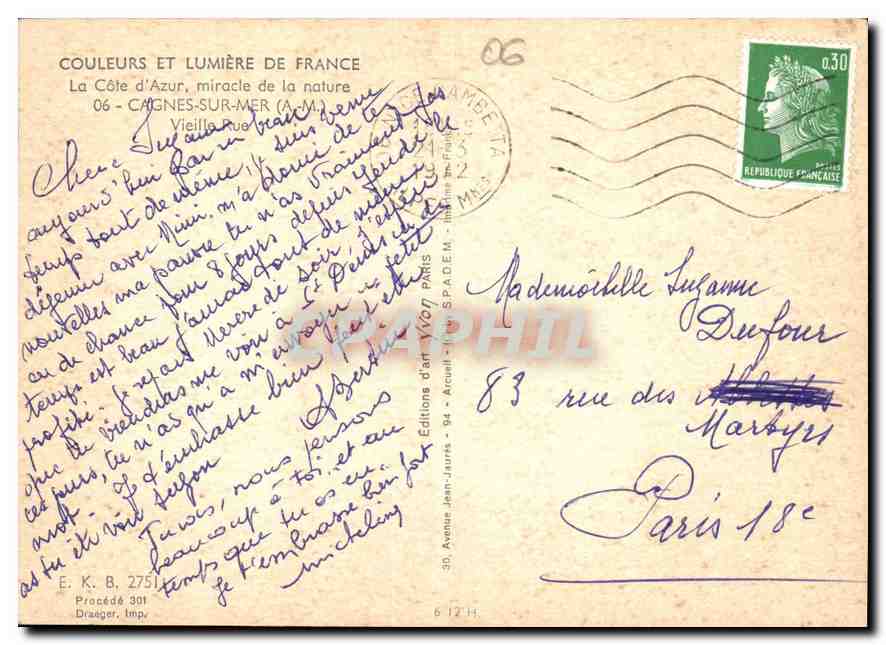 COULEURS ET LUMIÈRE DE FRANCE
La Côte d'Azur, miracle de la nature
06 - CAGNES-SUR-MER (A.-M.)
Vieille Rue
Chère Suzanne
aujourd'hui beau
temps tout de même, je suis venue
déjeuner avec Mimi, m'a donné de tes
nouvelles ma pauvre tu n'as vraiment pas
eu de chance pour 8 jours depuis
temps est beau j'aurais tout de mieux
profité. Je repars Mercredi soir, j'espère
que tu viendras me voir à St Denis un de
ces jours, tu n'as qu'à m'envoyer un petit
mot. Je t'embrasse bien peut être
as tu été voir
Tu vois, nous pensons
beaucoup à toi et au
temps que tu as eu
je t'embrasse bien fort
micheline
E. K. B. 2751
Procédé 301
Draeger, Imp.
Editions d'art Yvon PARIS
30, Avenue Jean-Jaurès - 94 - Arcueil - S.P.A.D.E.M. - Imprimé en France
6 12 H
CPAPHIL
06
NICE GAMBETTA
0,30
POSTES
REPUBLIQUE FRANÇAISE
Mademoiselle Suzanne
Dufour
83 rue des
Martyrs
Paris 18e